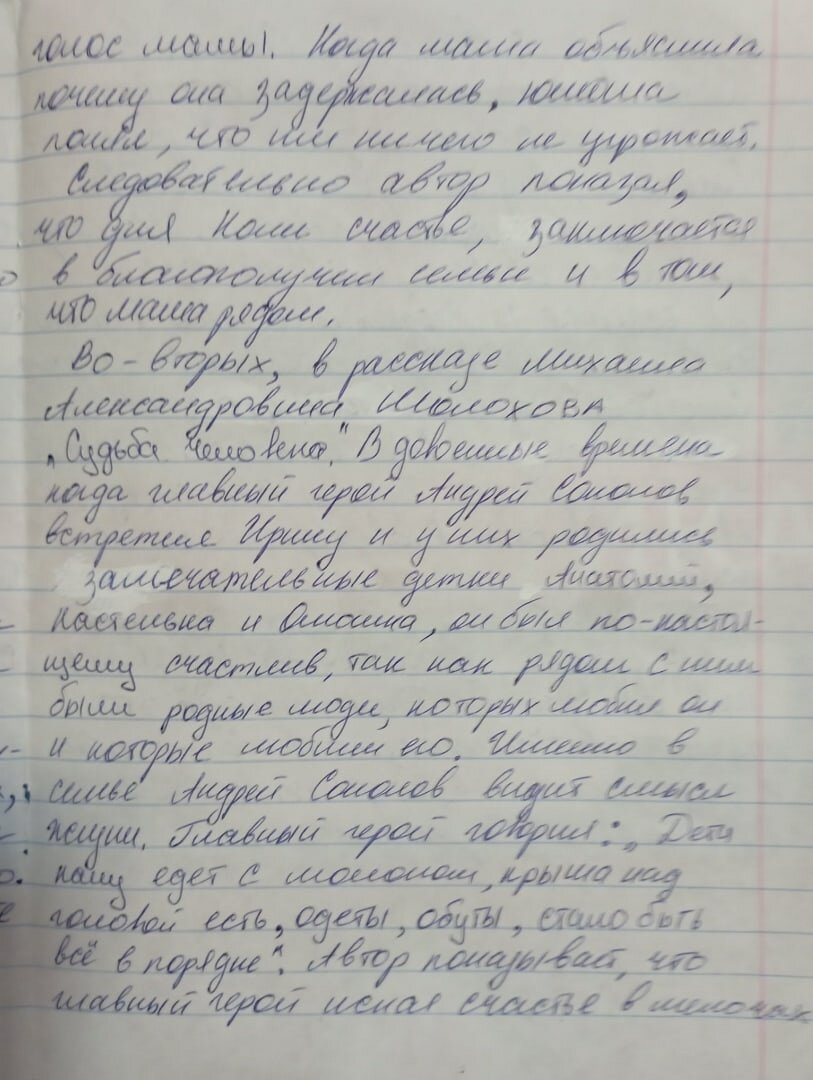 голос мамы. Когда мама объяснила
почему она задержалась, юноша
понял, что им ничего не угрожает.
Следовательно автор показал,
что для Коли счастье, заключается
в благополучии семьи и в том,
что мама рядом.
Во-вторых, в рассказе Михаила
Александровича Шолохова
„Судьба человека." В довоенные времена
когда главный герой Андрей Соколов
встретил Ирину и у них родились
замечательные детки Анатолий,
Настенька и Олюшка, он был по-настоя-
щему счастлив, так как рядом с ним
были родные люди, которых любил он
и которые любили его. Именно в
семье Андрей Соколов видит смысл
жизни. Главный герой говорил: „Дети
кашу едят с молоком, крыша над
головой есть, одеты, обуты, стало быть
всё в порядке". Автор показывает, что
главный герой искал счастье в мелочах